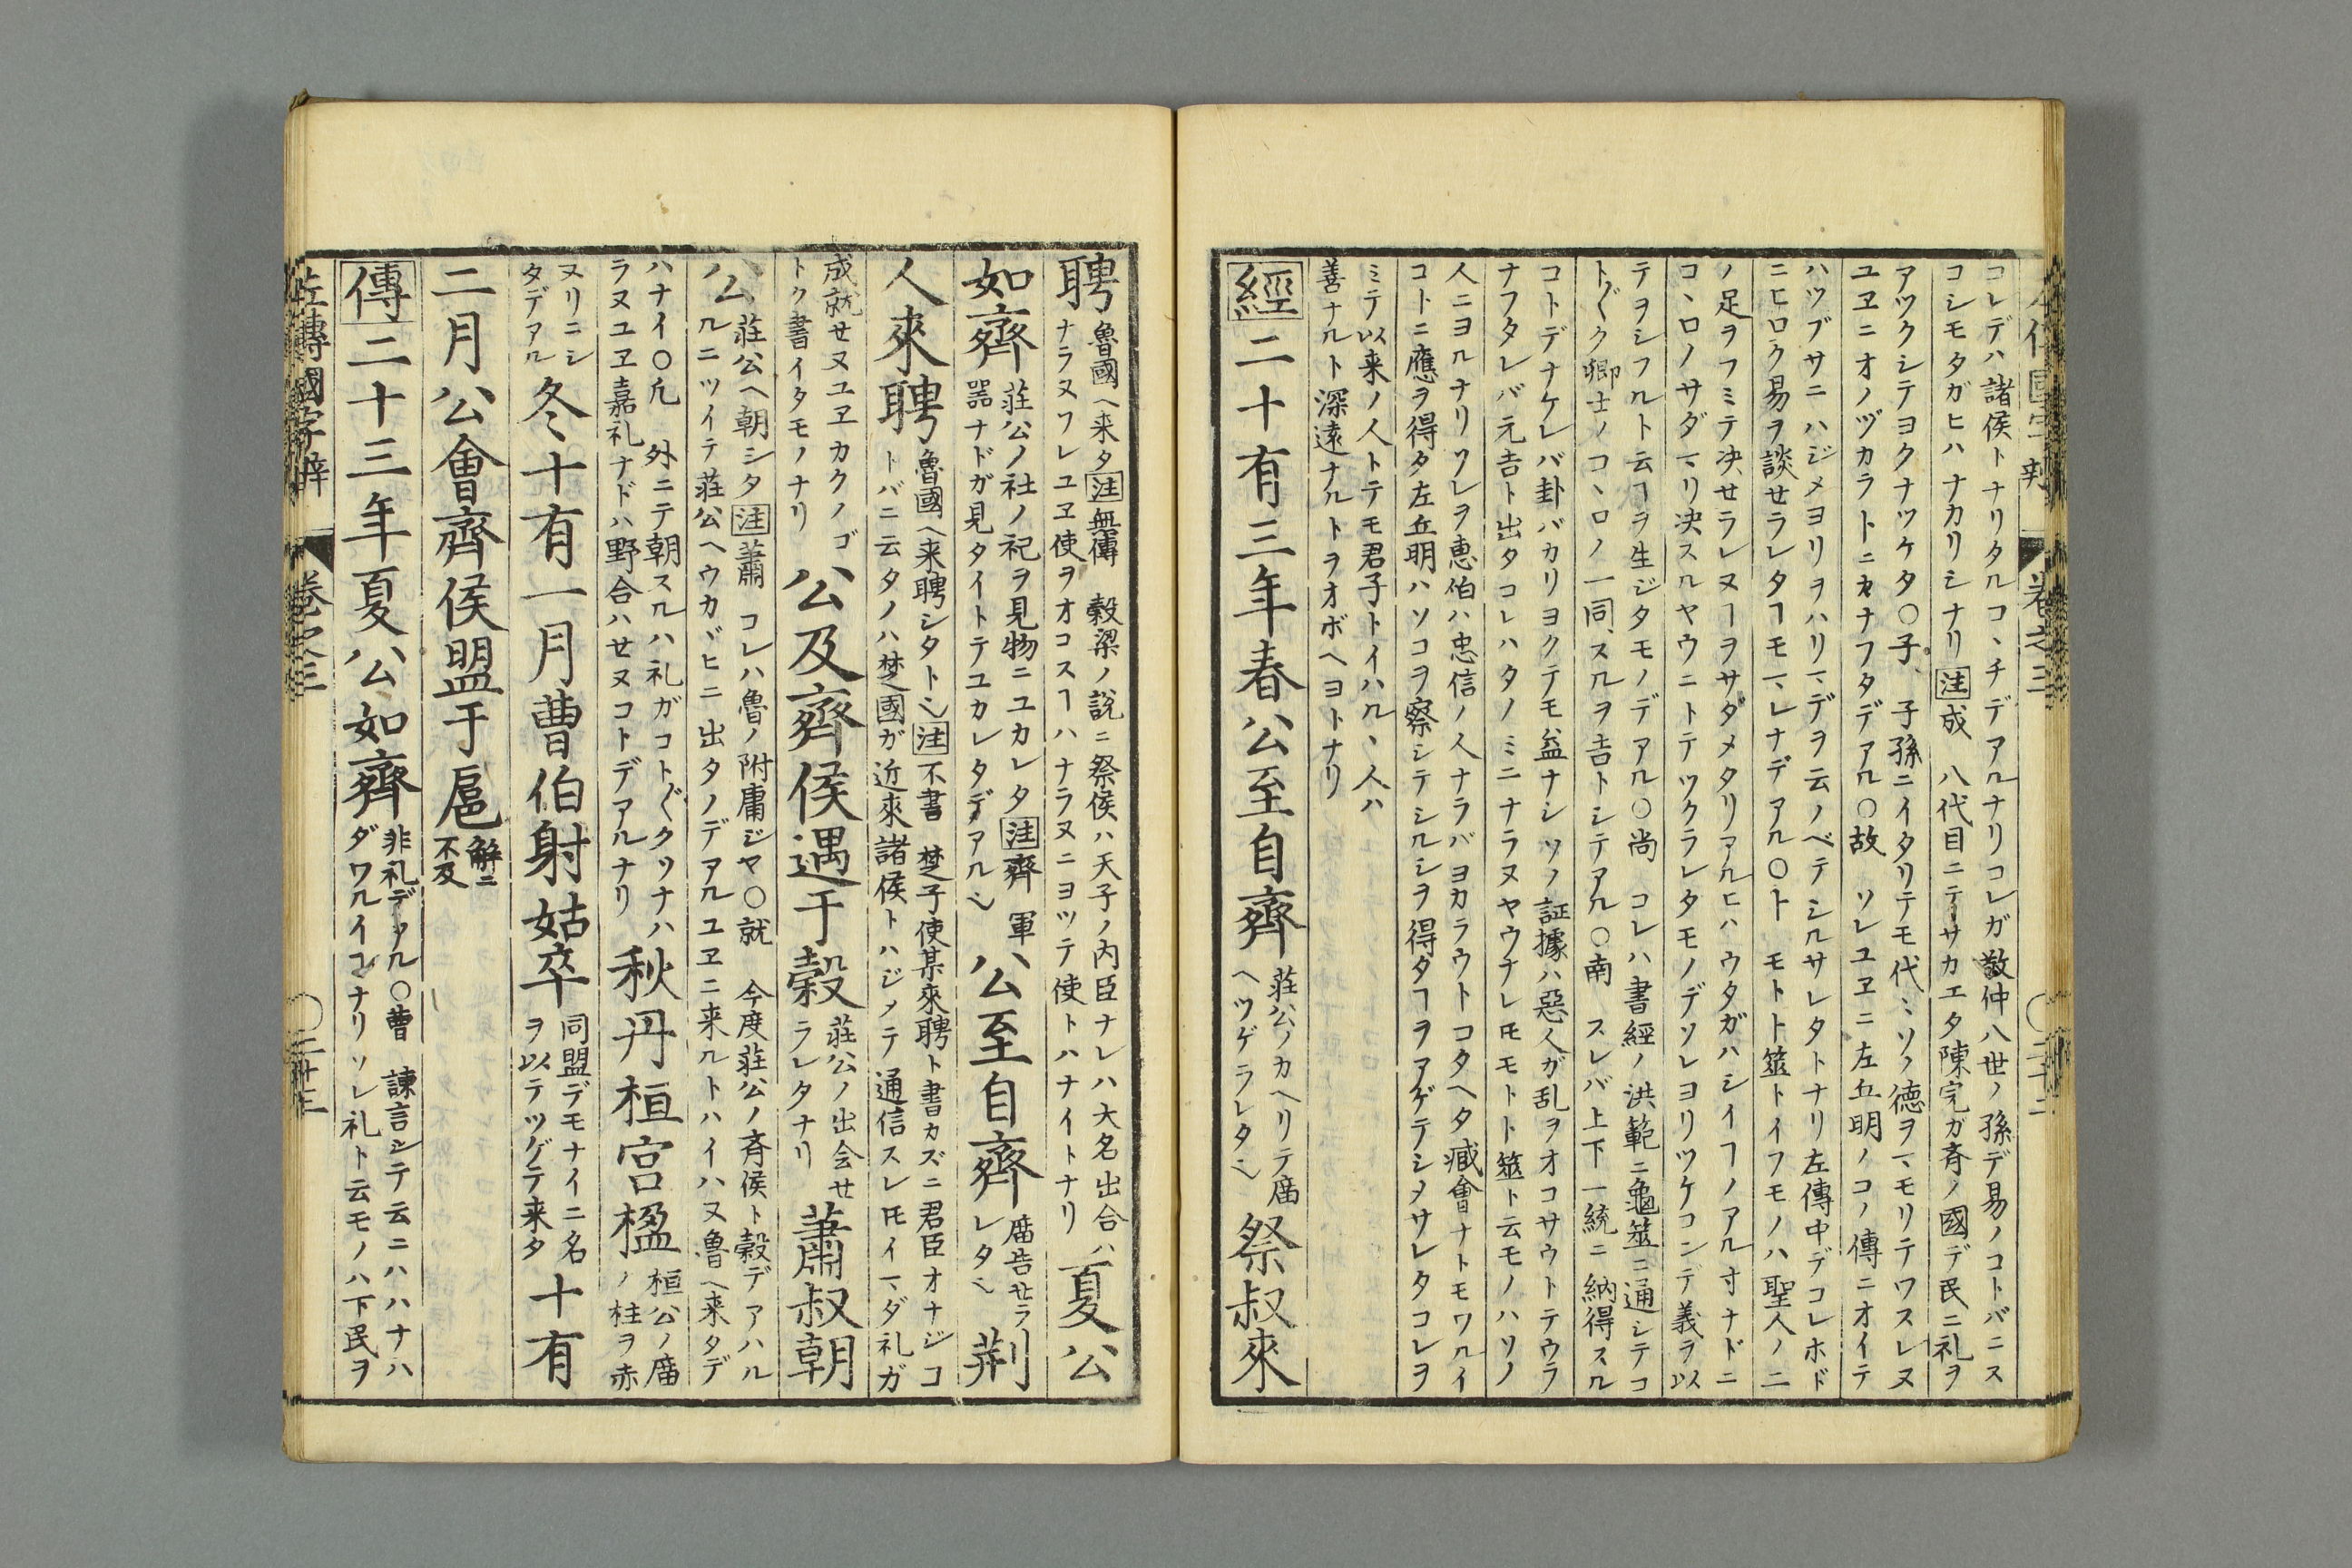 コレデハ諸侯トナリタルコヽチデアルナリコレガ敬仲八世ノ孫デ易ノコトバニス
コシモタガヒハナカリシナリ注成 八代目ニテサカエタ陳完ガ斉ノ國デ民ニ礼ヲ
アツクシテヨクナツケタ〇子、子孫ニイタリテモ代〻ソノ徳ヲマモリテワスレヌ
ユヱニオノヅカラトニカナフタデアル〇故 ソレユヱニ左丘明ノコノ傳ニオイテ
ハツブサニハジメヨリヲハリマデヲ云ノベテシルサレタトナリ左傳中デコレホド
ニヒロク易ヲ談せラレタヿモマレナデアル〇ト モト卜筮トイフモノハ聖人ノ二
ノ足ヲフミテ决せラレヌヿヲサダメタリアルヒハウタガハシイヿノアル寸ナドニ
コヽロノサダマリ决スルヤウニトテツクラレタモノデソレヨリツケコンデ義ヲ以
テヲシフルト云ヿヲ生ジタモノデアル〇尚 コレハ書經ノ洪範ニ龜筮ニ通シテコ
ト〲ク卿士ノコヽロノ一同、スルヲ吉トシテアル〇南 スレバ上下一統ニ納得スル
コトデナケレバ卦バカリヨクテモ益ナシソノ証據ハ惡人ガ乱ヲオコサウトテウラ
ナフタレバ元吉ト出タコレハタノミニナラヌヤウナレ𪜈モト卜筮ト云モノハソノ
人ニヨルナリワレヲ惠伯ハ忠信ノ人ナラバヨカラウトコタヘタ臧會ナトモワルイ
コトニ應ヲ得タ左丘明ハソコヲ察シテシルシヲ得タヿヲアゲテシメサレタコレヲ
ミテ以来ノ人トテモ君子トイハルヽ人ハ
善ナルト深遠ナルトヲオボヘヨトナリ
經二十有三年春公至自齊
莊公ノカヘリテ廟
ヘツゲラレタ也
祭叔來
聘
魯國ヘ来タ注無傳 穀梁ノ説ニ祭侯ハ天子ノ内臣ナレハ大名出合ハ
ナラヌワレユヱ使ヲオコスヿハナラヌニヨツテ使トハナイトナリ
夏公
如齊
莊公ノ社ノ祀ヲ見物ニユカレタ注齊 軍
器ナドガ見タイトテユカレタデアル也
公至自齊
廟告せラ
レタ也
荆
人來聘
魯國ヘ来聘シタト也注不書 楚子使某來聘ト書カズニ君臣オナジコ
トバニ云タノハ楚國ガ近來諸侯トハジメテ通信スレ𪜈イマダ礼ガ
成就せヌユヱカクノゴ
トク書イタモノナリ
公及齊侯遇于穀
莊公ノ出会せ
ラレタナリ
蕭叔朝
公
莊公ヘ朝シタ注蕭 コレハ魯ノ附庸ジヤ〇就 今度莊公ノ斉侯ト穀デアハル
ルニツイテ莊公ヘウカヾヒニ出タノデアルユヱニ来ルトハイハヌ魯ヘ来タデ
ハナイ〇凢 外ニテ朝スルハ礼ガコト〲クソナハ
ラヌユヱ嘉礼ナドハ野合ハせヌコトデアルナリ
秋丹桓宮楹
桓公ノ廟
ノ柱ヲ赤
ヌリニシ
タデアル
冬十有一月曹伯射姑卒
同盟デモナイニ名
ヲ以テツゲテ来タ
十有
二月公會齊侯盟于扈
解ニ
不及
傳二十三年夏公如齊
非礼デアル〇曹 諫言シテ云ニハハナハ
ダワルイコナリソレ礼ト云モノハ下民ヲ
左傳國字辯 卷之三 〇二十三